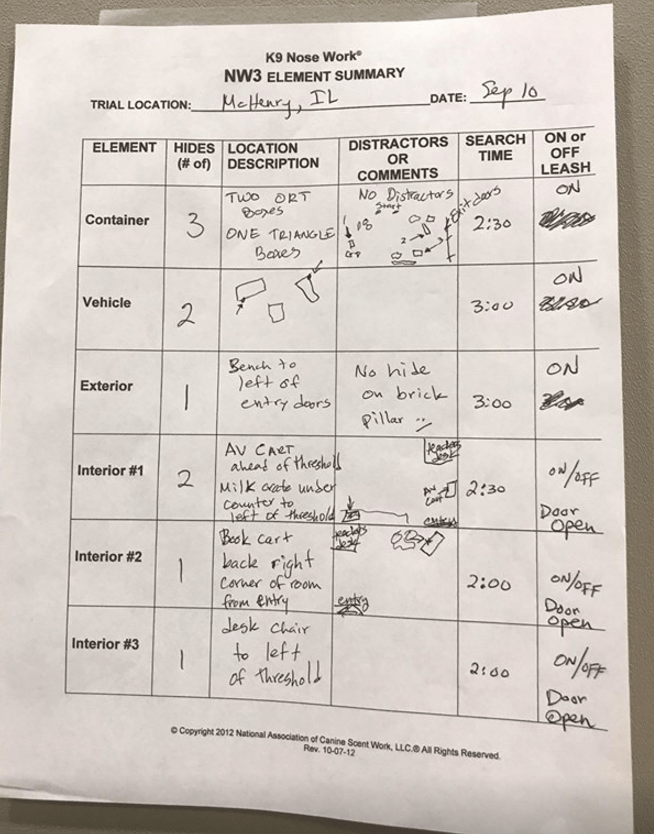 K9 Nose Work®
NW3 ELEMENT SUMMARY
TRIAL LOCATION: McHenry, IL DATE: Sep 10
ELEMENT
HIDES
(# of)
LOCATION
DESCRIPTION
DISTRACTORS
OR
COMMENTS
SEARCH
TIME
ON or
OFF
LEASH
Container
3
TWO ORT
Boxes
ONE TRIANGLE
Boxes
No Distractors
Start
18
2
Exit doors
2:30
ON
Vehicle
2
3:00
ON
Exterior
1
Bench to
left of
entry doors
No hide
on brick
pillar
3:00
ON
Interior #1
2
AV CART
ahead of threshold
Milk crate under
counter to
left of threshold
teachers
desk
AV
Cart
entry
2:30
ON/OFF
Door
Open
Interior #2
1
Book cart
back right
corner of room
from entry
teachers
desk
entry
2:00
ON/OFF
Door
Open
Interior #3
1
desk chair
to left
of threshold
2:00
ON/OFF
Door
Open
© Copyright 2012 National Association of Canine Scent Work, LLC.® All Rights Reserved.
Rev. 10-07-12